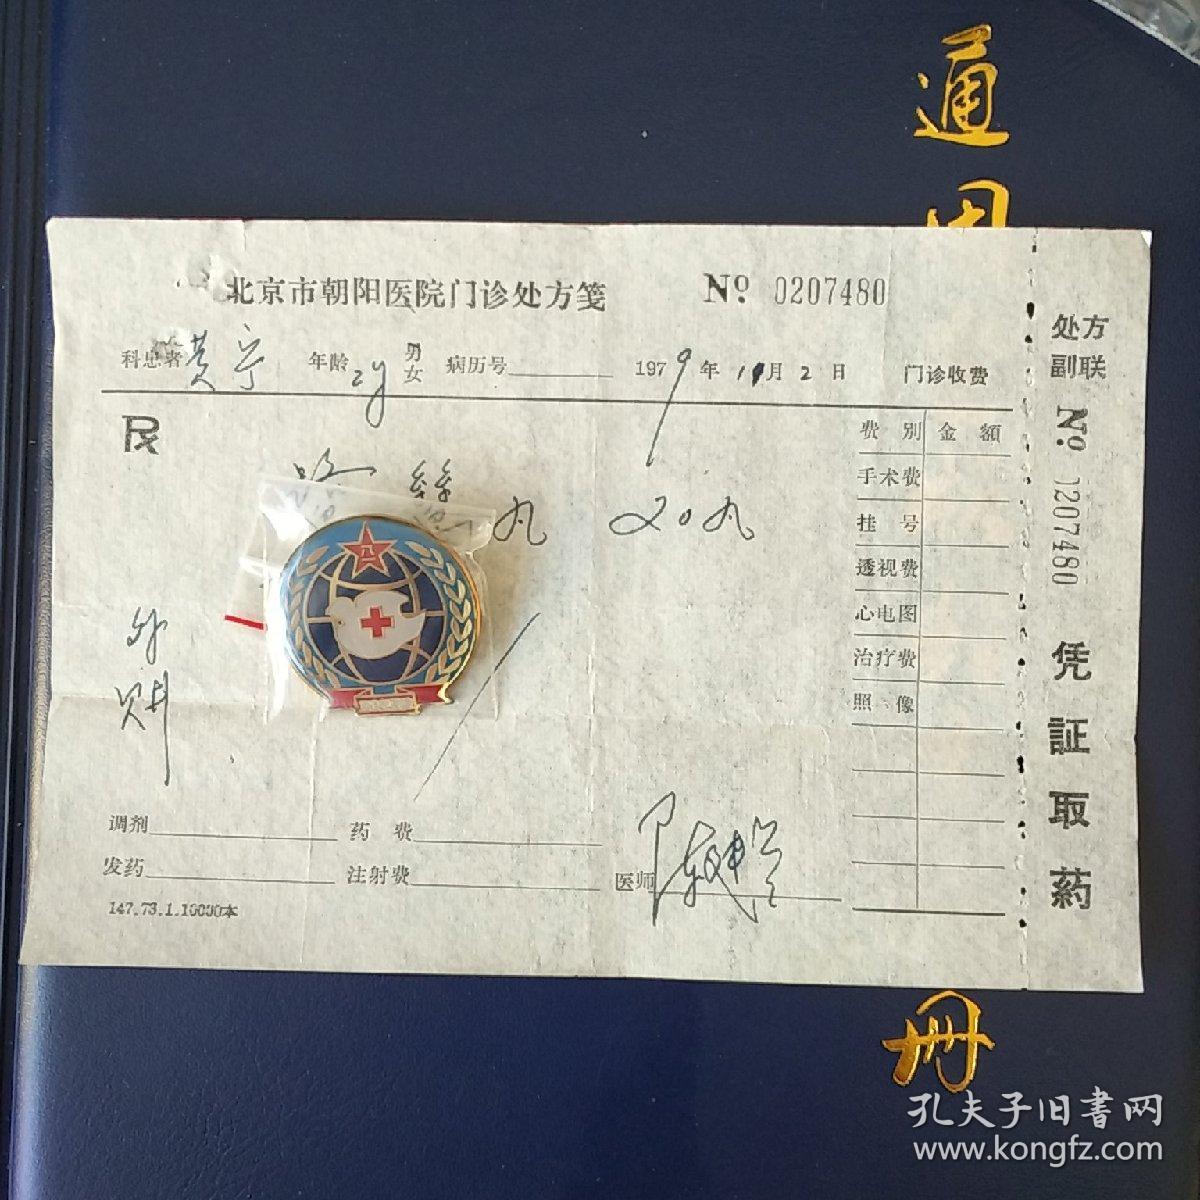 通用
册
北京市朝阳医院门诊处方笺 Nº 0207480
科患者 黄宁 年龄 2y 男 女 病历号 1979年 11月 2日 门诊收费
℞
丸 20丸
费别 金额
手术费
挂号
透视费
心电图
治疗费
照像
调剂 药费
发药 注射费 医师
147.73.1.10000本
处方
副联
Nº 0207480
凭証取药
八一
孔夫子旧書网
www.kongfz.com